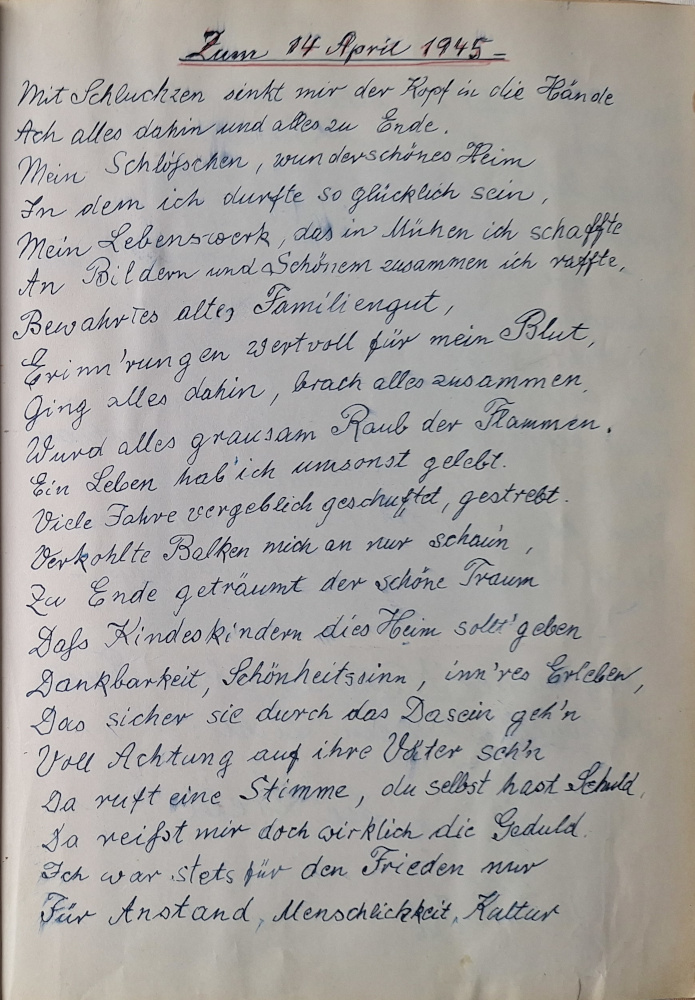 Zum 14 April 1945 –
Mit Schluchzen sinkt mir der Kopf in die Hände
Ach alles dahin und alles zu Ende.
Mein Schlößchen, wunderschönes Heim
In dem ich durfte so glücklich sein,
Mein Lebenswerk, das in Mühen ich schaffte
An Bildern und Schönem zusammen ich raffte,
Bewahrtes altes Familiengut,
Erinn'rungen wertvoll für mein Blut,
Ging alles dahin, brach alles zusammen,
Wurd alles grausam Raub der Flammen.
Ein Leben hab' ich umsonst gelebt.
Viele Jahre vergeblich geschuftet, gestrebt.
Verkohlte Balken mich an nur schau'n,
Zu Ende geträumt der schöne Traum
Daß Kindeskindern dies Heim sollt' geben
Dankbarkeit, Schönheitssinn, inn'res Erleben,
Das sicher sie durch das Dasein geh'n
Voll Achtung auf ihre Väter seh'n
Da ruft eine Stimme, du selbst hast Schuld,
Da reißt mir doch wirklich die Geduld.
Ich war stets für den Frieden nur
Für Anstand, Menschlichkeit, Kultur